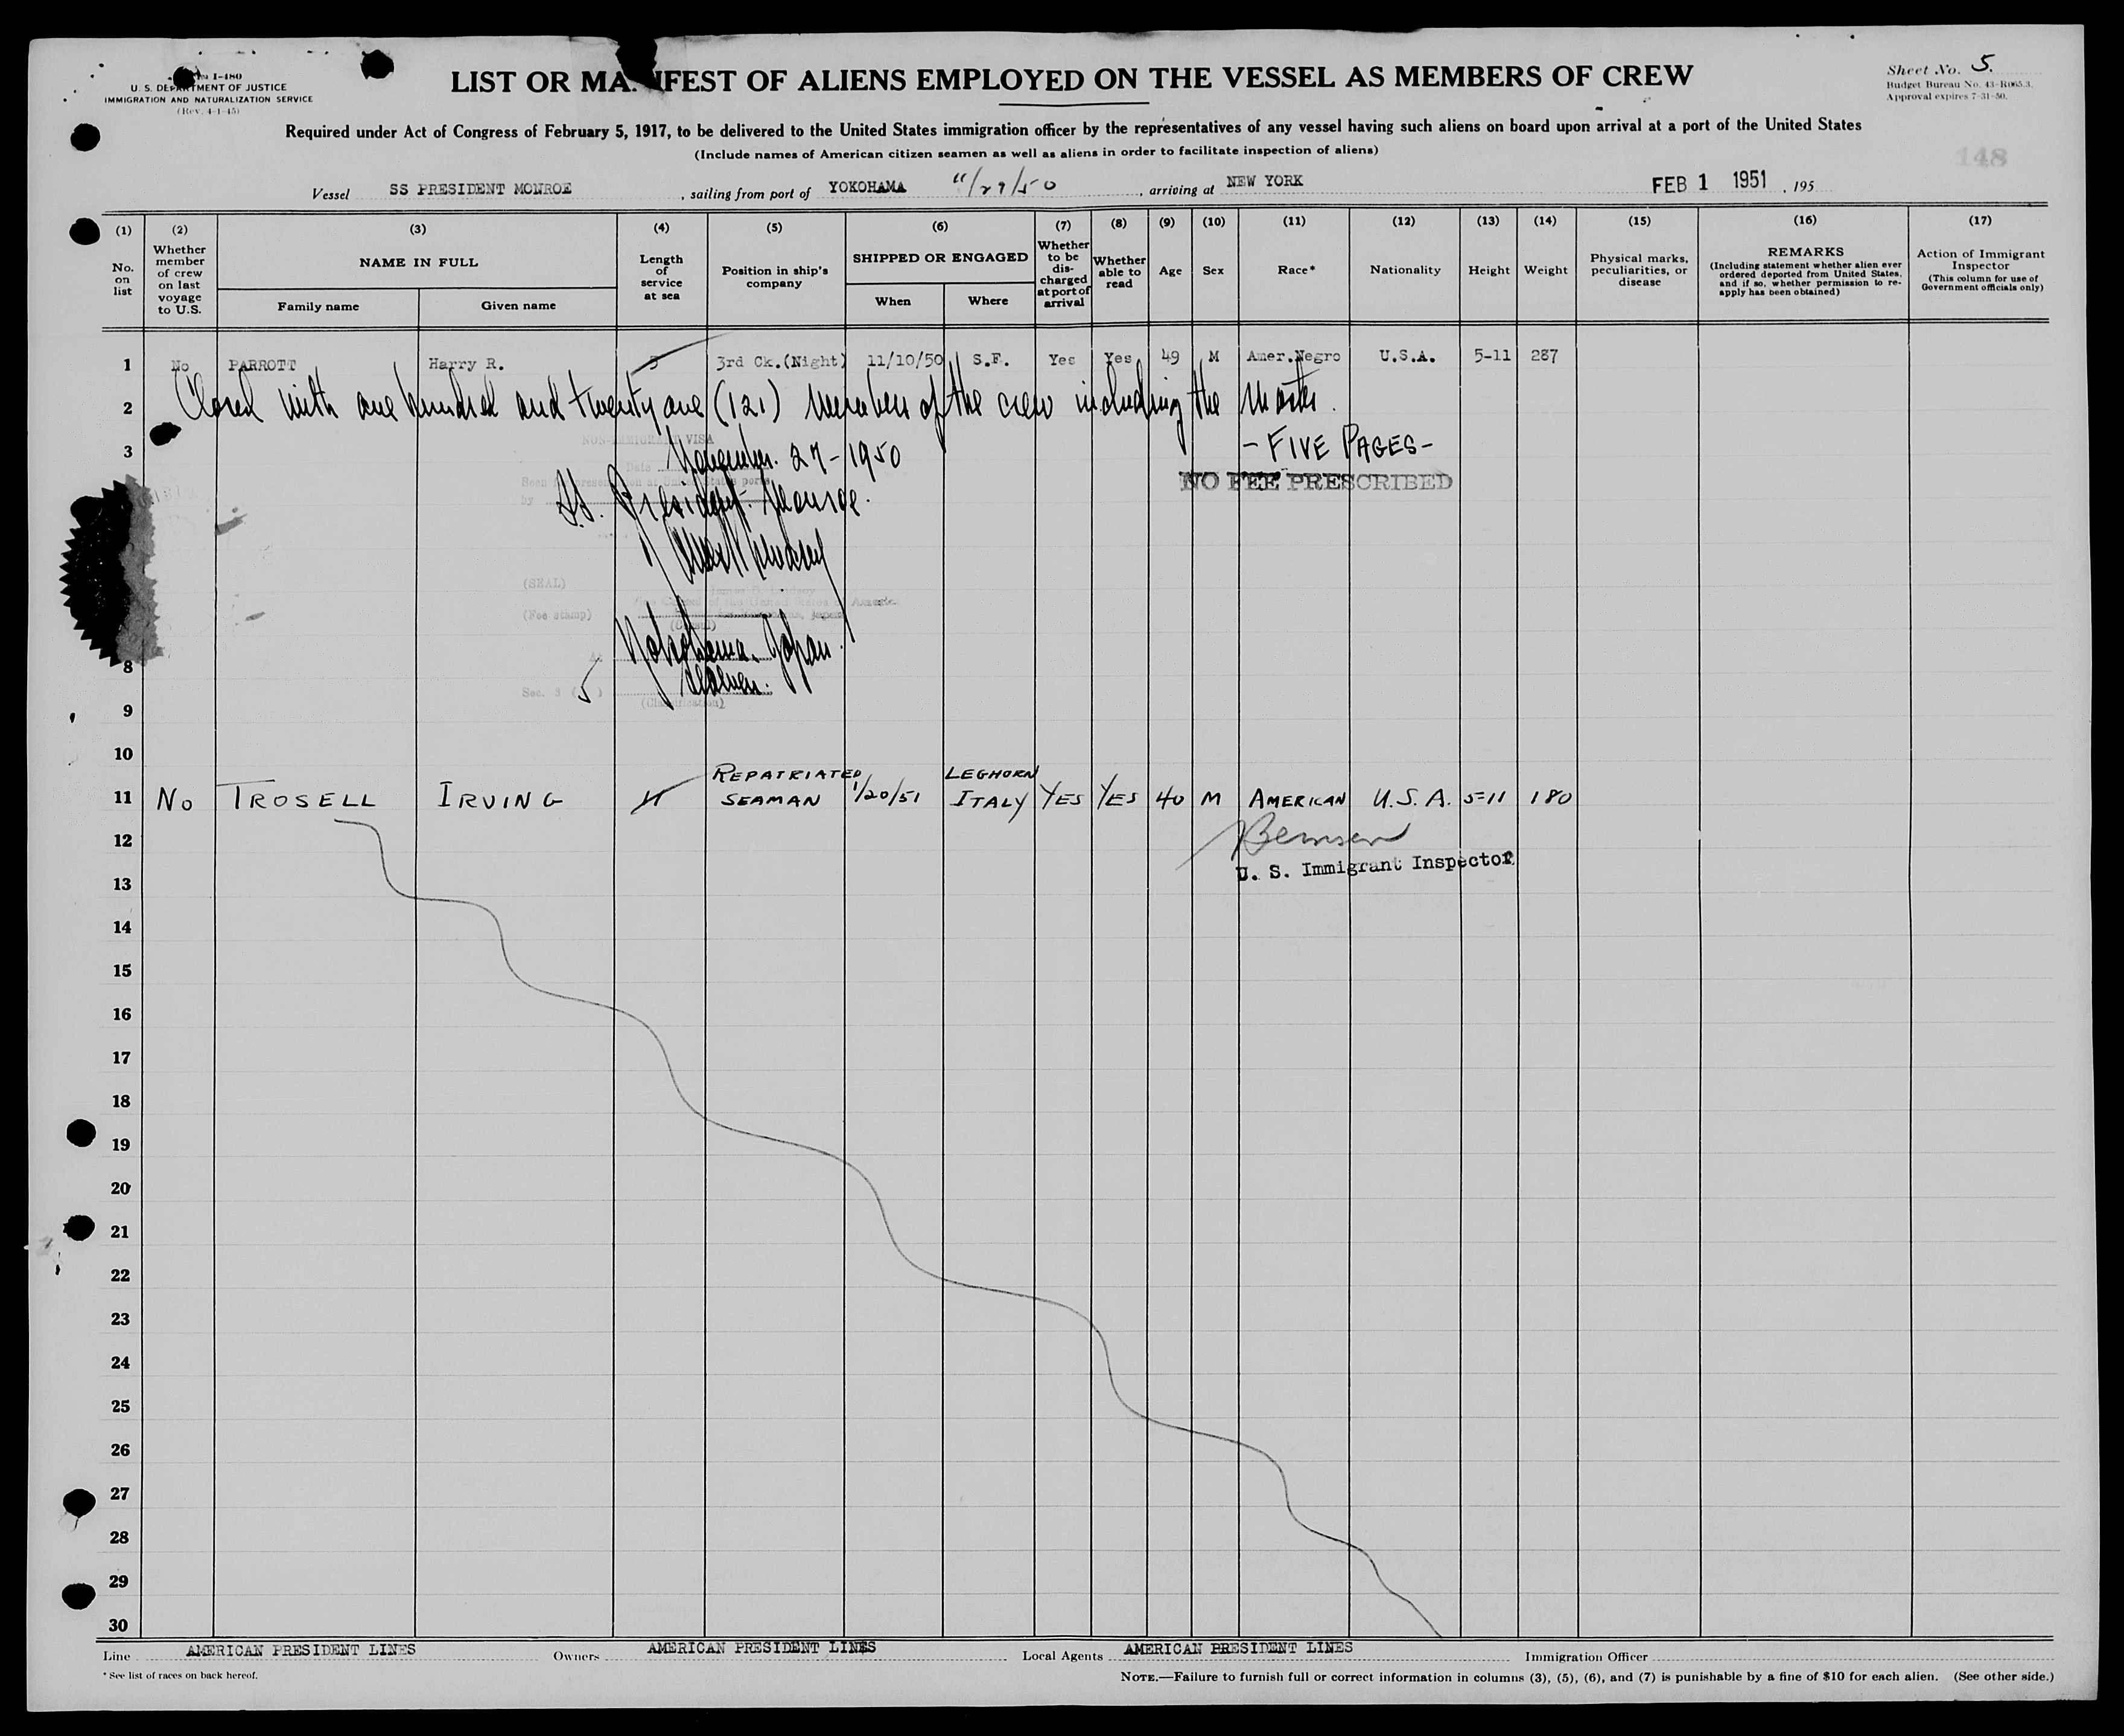 Form I-480
U. S. DEPARTMENT OF JUSTICE
IMMIGRATION AND NATURALIZATION SERVICE
(Rev. 4-1-45)
LIST OR MANIFEST OF ALIENS EMPLOYED ON THE VESSEL AS MEMBERS OF CREW
Sheet No. 5.
Budget Bureau No. 43-R065.3.
Approval expires 7-31-50.
Required under Act of Congress of February 5, 1917, to be delivered to the United States immigration officer by the representatives of any vessel having such aliens on board upon arrival at a port of the United States
(Include names of American citizen seamen as well as aliens in order to facilitate inspection of aliens)
148
Vessel SS PRESIDENT MONROE, sailing from port of YOKOHAMA 11/29/50, arriving at NEW YORK FEB 1 1951, 195
(1) (2) (3) (4) (5) (6) (7) (8) (9) (10) (11) (12) (13) (14) (15) (16) (17)
No. on list
Whether member of crew on last voyage to U.S.
NAME IN FULL
Family name
Given name
Length of service at sea
Position in ship's company
SHIPPED OR ENGAGED
When
Where
Whether to be discharged at port of arrival
Whether able to read
Age
Sex
Race*
Nationality
Height
Weight
Physical marks, peculiarities, or disease
REMARKS
(Including statement whether alien ever ordered deported from United States, and if so, whether permission to reapply has been obtained)
Action of Immigrant Inspector
(This column for use of Government officials only)
1 No PARROTT Harry R. 5 3rd Ck.(Night) 11/10/50 S.F. Yes Yes 49 M Amer.Negro U.S.A. 5-11 287
2 Closed with one hundred and twenty one (121) members of the crew including the master.
3 - FIVE PAGES -
NON-IMMIGRANT VISA
Date November 27 - 1950
NO FEE PRESCRIBED
Seen for presentation at United States ports
by SS. President Monroe.
(SEAL)
Vice Consul of the United States of America
(Fee stamp)
(Consul)
At Yokohama, Japan.
8
Sec. 3 (5) Seamen.
(Classification)
9
10
11 No TROSELL IRVING 4 REPATRIATED SEAMAN 1/20/51 LEGHORN ITALY YES YES 40 M AMERICAN U.S.A. 5-11 180
12
U. S. Immigrant Inspector
13
14
15
16
17
18
19
20
21
22
23
24
25
26
27
28
29
30
Line AMERICAN PRESIDENT LINES Owners AMERICAN PRESIDENT LINES Local Agents AMERICAN PRESIDENT LINES Immigration Officer
* See list of races on back hereof.
NOTE.—Failure to furnish full or correct information in columns (3), (5), (6), and (7) is punishable by a fine of $10 for each alien. (See other side.)